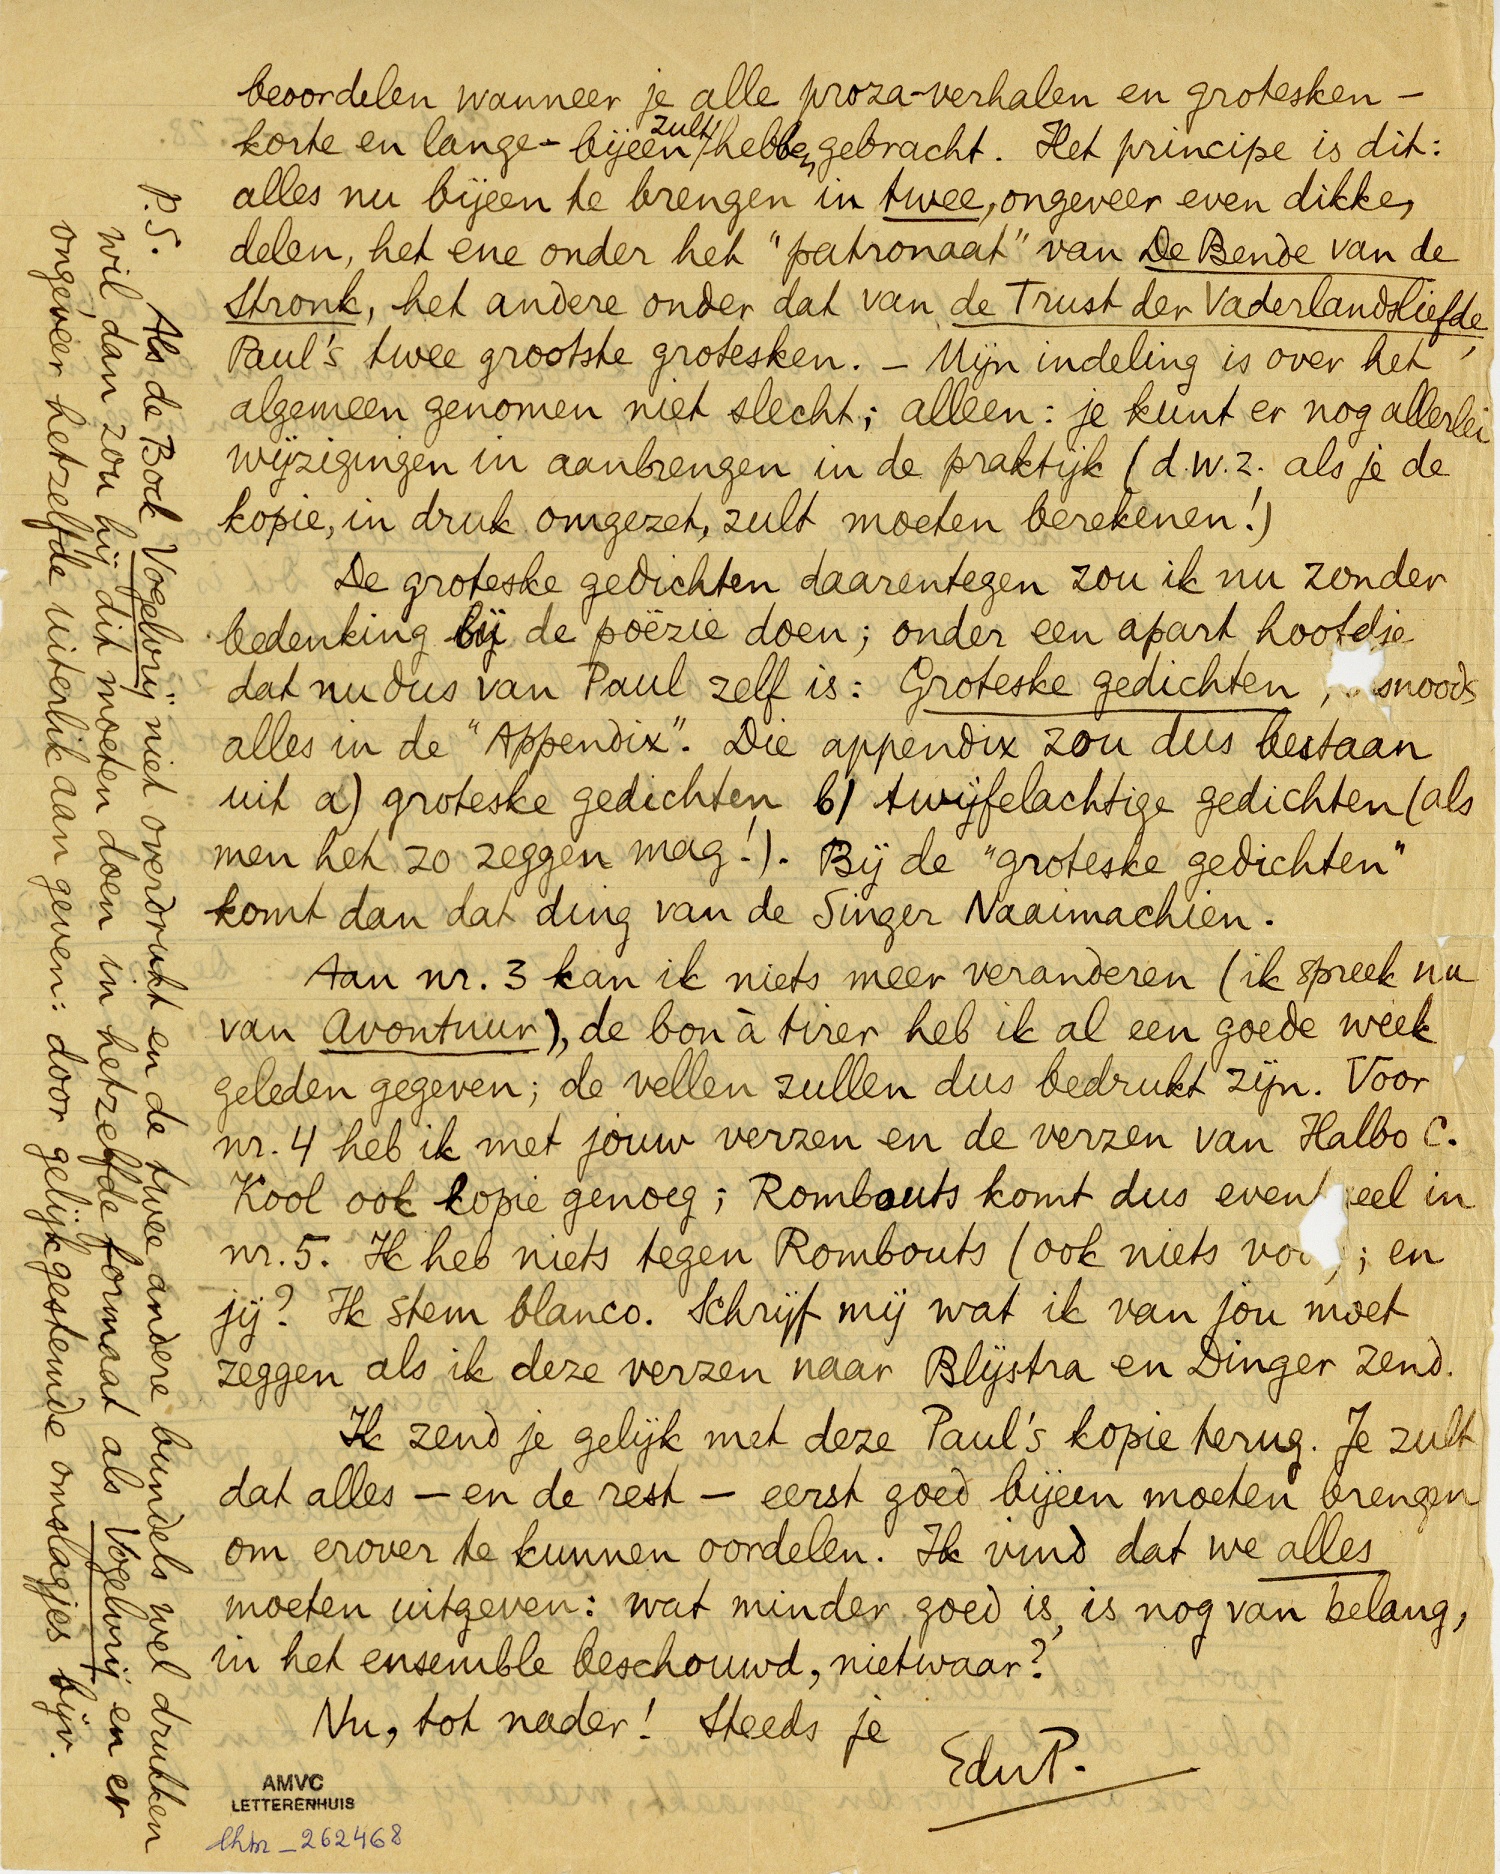 beoordelen wanneer je alle proza-verhalen en grotesken –
korte en lange – bijeen zult hebben gebracht. Het principe is dit:
alles nu bijeen te brengen in twee, ongeveer even dikke,
delen, het ene onder het "patronaat" van De Bende van de
Stronk, het andere onder dat van de Trust der Vaderlandsliefde,
Paul's twee grootste grotesken. – Mijn indeling is over het
algemeen genomen niet slecht; alleen: je kunt er nog allerlei
wijzigingen in aanbrengen in de praktijk (d.w.z. als je de
kopie, in druk omgezet, zult moeten berekenen!)
De groteske gedichten daarentegen zou ik nu zonder
bedenking bij de poëzie doen; onder een apart hoofdje
dat nu dus van Paul zelf is: Groteske gedichten, snoods
alles in de "Appendix". Die appendix zou dus bestaan
uit a) groteske gedichten b) twijfelachtige gedichten (als
men het zo zeggen mag!). Bij de "groteske gedichten"
komt dan dat ding van de Singer Naaimachien.
Aan nr. 3 kan ik niets meer veranderen (ik spreek nu
van Avontuur), de bon à tirer heb ik al een goede week
geleden gegeven; de vellen zullen dus bedrukt zijn. Voor
nr. 4 heb ik met jouw verzen en de verzen van Halbo C.
Kool ook kopie genoeg; Rombouts komt dus eventueel in
nr. 5. Ik heb niets tegen Rombouts (ook niets voor); en
jij? Ik stem blanco. Schrijf mij wat ik van jou moet
zeggen als ik deze verzen naar Blijstra en Dinger zend.
Ik zend je gelijk met deze Paul's kopie terug. Je zult
dat alles – en de rest – eerst goed bijeen moeten brengen
om erover te kunnen oordelen. Ik vind dat we alles
moeten uitgeven: wat minder goed is, is nog van belang,
in het ensemble beschouwd, nietwaar?
Nu, tot nader! Steeds je
EduP.
P.S. Als de Bock Vogelvrij niet overdrukt en de twee andere bundels wel drukken
wil, dan zou hij dit moeten doen in hetzelfde formaat als Vogelvrij en er
ongeveer hetzelfde uiterlik aan geven: door gelijkgestemde omslagjes bijv.
AMVC
LETTERENHUIS
lhm_262468